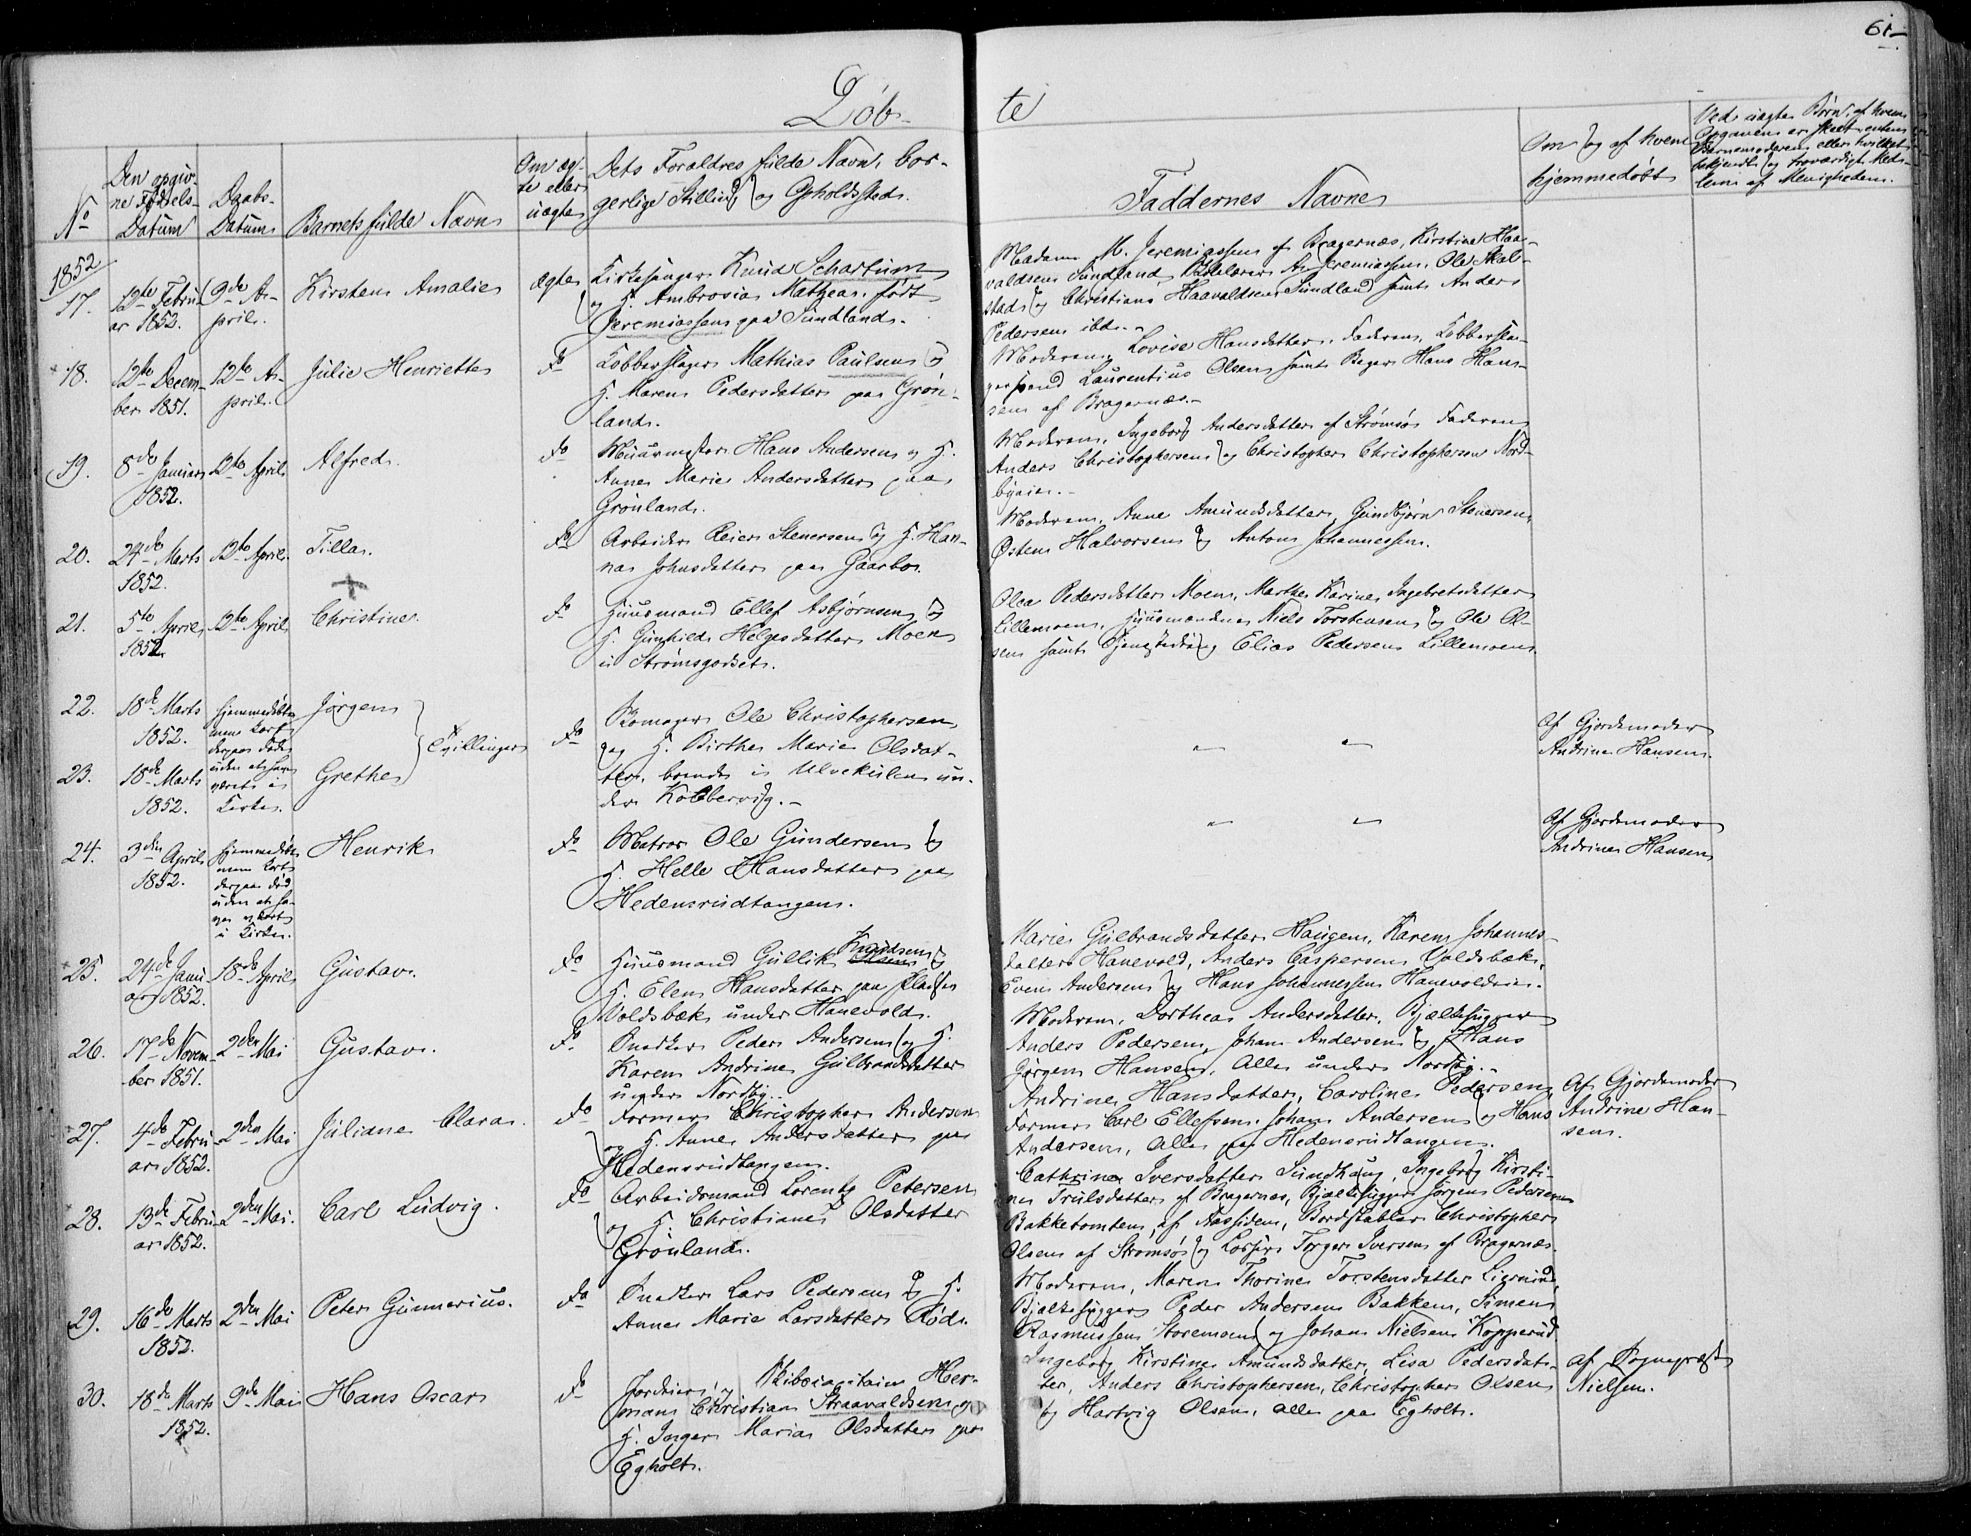 61
Døb-
te
No
Den opgiv-
ne Fødsels-
Datum
Daabs-
Datum
Barnets fulde Navn
Om æg-
te eller
uægte
Dets Forældres fulde Navn, bor-
gerlige Stilling og Opholdssted.
Faddernes Navne
Om og af hvem
hjemmedøbt
Ved uægte Børn, af hvem
Opgaven er skeet enten
Barnemoderen eller hvilket
bekjendt og troværdigt Med-
lem af Menigheden.
1852
17.
12te Febru
ar 1852.
9de A-
pril.
Kirsten Amalie
Ægte
Kirkesanger Knud Schartum
og H. Ambrosia Mathea, født
Jeremiassen paa Sundland.
Madam M. Jeremiassen af Bragernæs, Kirstine Haa-
valdsen Sundland, Jeremiassen, Ole Skal-
stad og Christian Haavaldsen Sundland samt Anders
Pedersen ibd.
18.
12te Decem-
ber 1851.
12te A-
pril.
Julie Henriette
Do
Kobberslager Mathias Paulsen og
H. Maren Pedersdatter paa Grøn-
land.
Moderen, Lovise Hansdatter, Faderen, Kobbersla-
gersvend Laurentius Olsen samt Bager Hans Han-
sen af Bragernæs.
19.
8de Januar
1852.
12te April
Alfred.
Do
Muurmester Hans Andersen og H.
Anne Marie Andersdatter paa
Grønland.
Moderen, Ingeborg Andersdatter af Strømsø Faderen
Anders Christophersen og Christopher Christophersen Nord-
byeie.
20.
24de Marts
1852.
12te April.
Tilla.
Do
Arbeider Reier Stenersen og H. Han-
na Johnsdatter paa Gaarbo.
Moderen, Anne Amundsdatter, Gundbjørn Stenersen,
Østen Halvorsen og Anton Johannessen.
21.
5te April
1852.
12te April
Christine.
Do
Huusmand Ellef Asbjørnsen og
H. Gunhild Helgesdatter Moen
i Strømsgodset.
Olea Pedersdatter Moen, Marthe Karine Ingebretsdatter
Lillemoen, Huusmændene Niels Torstensen og Ole Ol-
sen samt Elias Pedersen Lillemoen.
22.
18de Marts
1852.
hjemmedøbte
men kort
derpaa døde
uden at have
været i
Kirke.
Jørgen
Tvillinger
Do
Komager Ole Christophersen
og H. Birthe Marie Olsdat-
ter, boende i Ulvekulen un-
der Kobbervig.
"
"
Af Gjordemoder
Andrine Hansen.
23.
18de Marts
1852.
Grethe
24.
3die April
1852.
hjemmedøbt
men kort
derpaa død
uden at ha-
ve været
i Kirke.
Henrik
Do
Matros Ole Gundersen og
H. Helle Hansdatter paa
Hedensrudtangen.
"
"
Af Gjordemoder
Andrine Hansen
25.
24de Janu-
ar 1852.
18de April
Gustav.
Do
Huusmand Gullik Knudsen og
H. Elen Hansdatter paa Pladsen
Voldsbæk under Hanevold.
Marie Gulbrandsdatter Haugen, Karen Johannes-
datter Hanevold, Anders Caspersen Voldsbæk,
Even Andersen og Hans Johannessen Hanevoldeie.
26.
17de Novem-
ber 1851.
2den Mai
Gustav.
Do
Snedker Peder Andersen og H.
Karen Andrine Gulbrandsdatter
under Nordby.
Moderen, Dorthea Andersdatter, Bjælkehugger
Anders Pedersen, Johan Andersen og Hans
Jørgen Hansen, Alle under Nordby.
27.
4de Febru
ar 1852.
2den Mai
Juliane Clara.
Do
Former Christopher Andersen
og H. Anne Andersdatter paa
Hedensrudtangen.
Andrine Hansdatter, Caroline Pedersen,
Former Carl Ellefsen, Johan Andersen og Hans
Andersen, Alle paa Hedensrudtangen.
Af Gjordemoder
Andrine Han-
sen.
28.
13de Febru
ar 1852.
2den Mai.
Carl Ludvig.
Do
Arbeidsmand Lorentz Petersen
og H. Christiane Olsdatter
Grønland.
Cathrine Iversdatter Sundhaug, Ingeborg Kirsti-
ne Trulsdatter af Bragernæs, Bjælkehugger Jørgen Pedersen
Bakketomten af Aassiden, Bordstabler Christopher
Olsen af Strømsø og Torger Iversen af Bragernæs.
29.
16de Marts
1852.
2den Mai
Peter Gunnerius.
Do
Snedker Lars Pedersen og H.
Anne Marie Larsdatter Rød.
Moderen, Maren Thorine Torstensdatter
Bjælkehugger Peder Andersen Bakken, Simen
Rasmussen Storemoen og Johan Nielsen Kopperud
30.
18de Marts
1852.
9de Mai
Hans Oscar
Do
Jordeier, og Skibscapitain Her-
man Christian Straavaldsen og
H. Inger Maria Olsdatter paa
Egholt.
Ingeborg Kirstine Amundsdatter, Lisa Pedersdat-
ter, Anders Christophersen, Christopher Olsen
og Hartvig Olsen, alle paa Egholt.
Af Sognepræst
Nielsen.